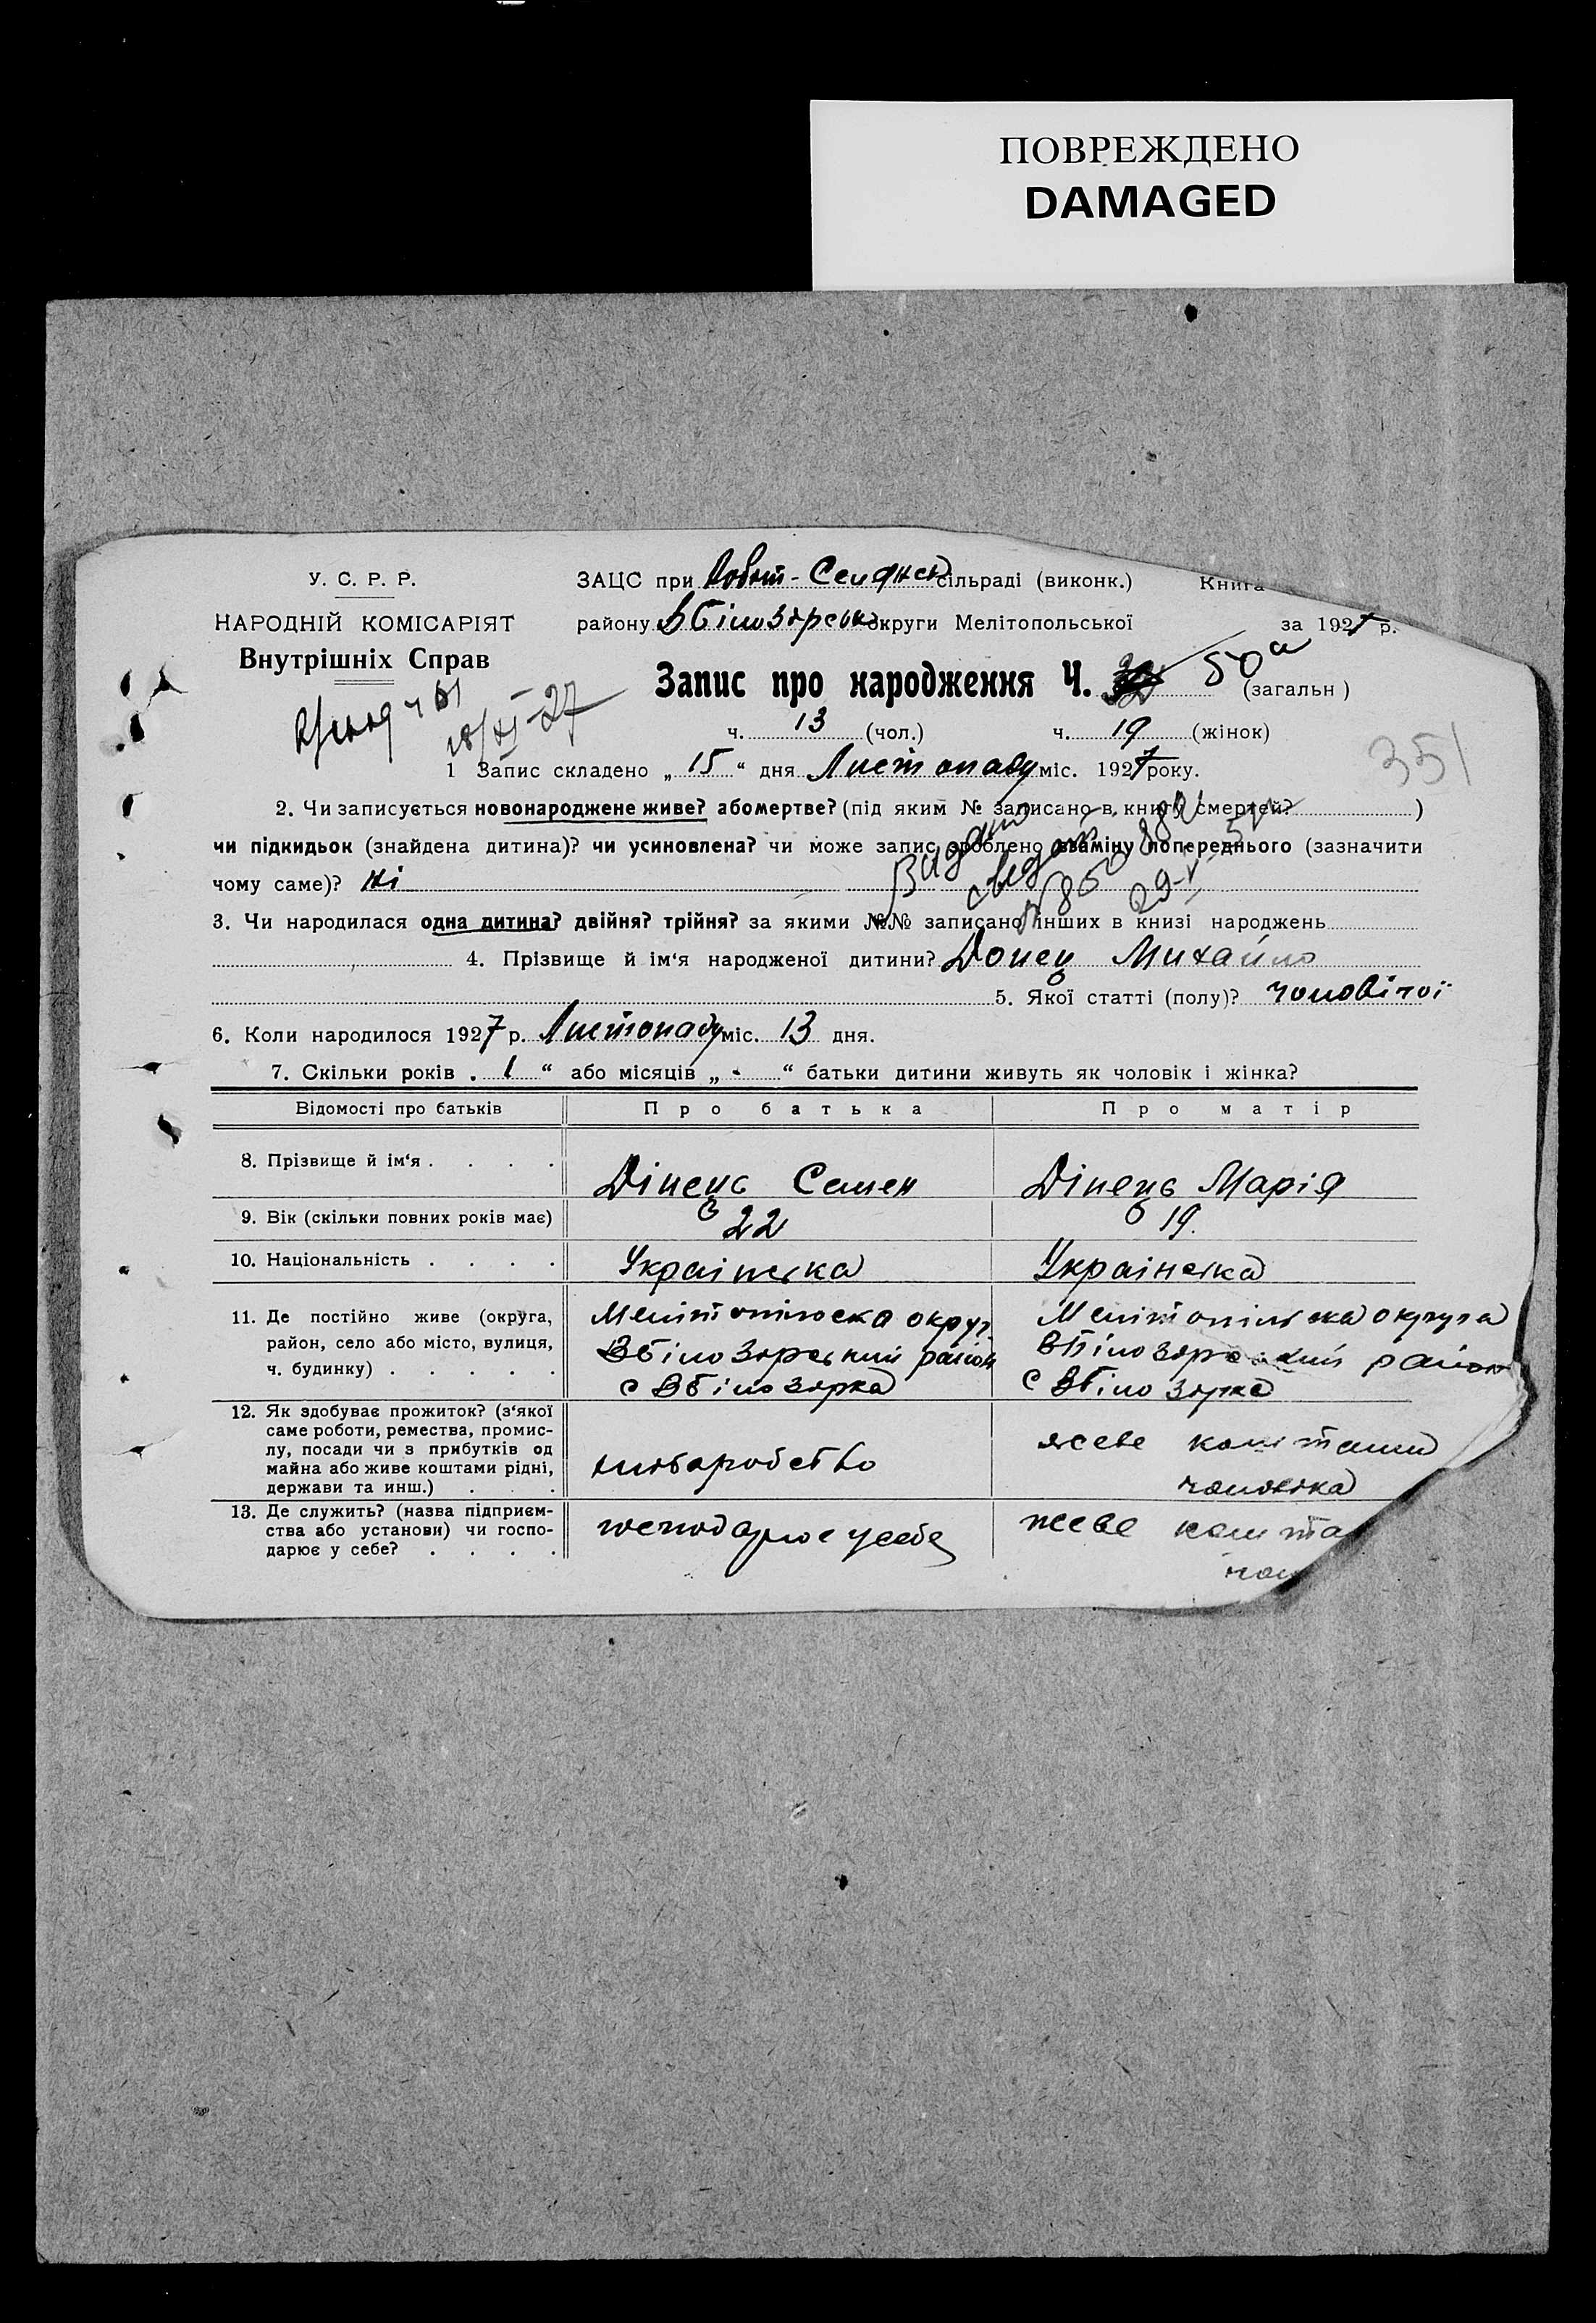 ПОВРЕЖДЕНО
DAMAGED
У. С. Р. Р.
НАРОДНІЙ КОМІСАРІЯТ
Внутрішніх Справ
ЗАЦС при сільраді (виконк.) Книга
району ВБілозерськ округи Мелітопольської за 1927 р.
Запис про народження Ч. 32 50а (загальн)
ч. 13 (чол.) ч. 19 (жінок)
18/XI-27
351
1 Запис складено „ 15 “ дня Листопаду міс. 1927 року.
2. Чи записується новонароджене живе? або мертве? (під яким № записано в книгу смертей? )
чи підкидьок (знайдена дитина)? чи усиновлена? чи може запис зроблено взаміну попереднього (зазначити
чому саме)? Ні
3. Чи народилася одна дитина? двійня? трійня? за якими №№ записано інших в книзі народжень
4. Прізвище й ім‘я народженої дитини? Донец Михайло
5. Якої статті (полу)? чоловічої
6. Коли народилося 1927 р. Листопаду міс. 13 дня.
7. Скільки років „ 1 “ або місяців „ - “ батьки дитини живуть як чоловік і жінка?
Відомості про батьків Про батька Про матір
8. Прізвище й ім‘я . . . . Дінець Семен Дінець Марія
9. Вік (скільки повних років має) 22 19.
10. Національність . . . . Українська Українська
11. Де постійно живе (округа, район, село або місто, вулиця, ч. будинку) . . . . .
Мелітопільска округ. Мелітопільска округа
ВБілозерський район ВБілозерский район
с ВБілозерка с ВБілозерка
12. Як здобуває прожиток? (з‘якої
саме роботи, ремества, промис-
лу, посади чи з прибутків од
майна або живе коштами рідні,
держави та инш.) . . .
хліборобство живе коштами
чоловіка
13. Де служить? (назва підприєм-
ства або установи) чи госпо-
дарює у себе? . . . .
господарює у себе живе кошта
чол